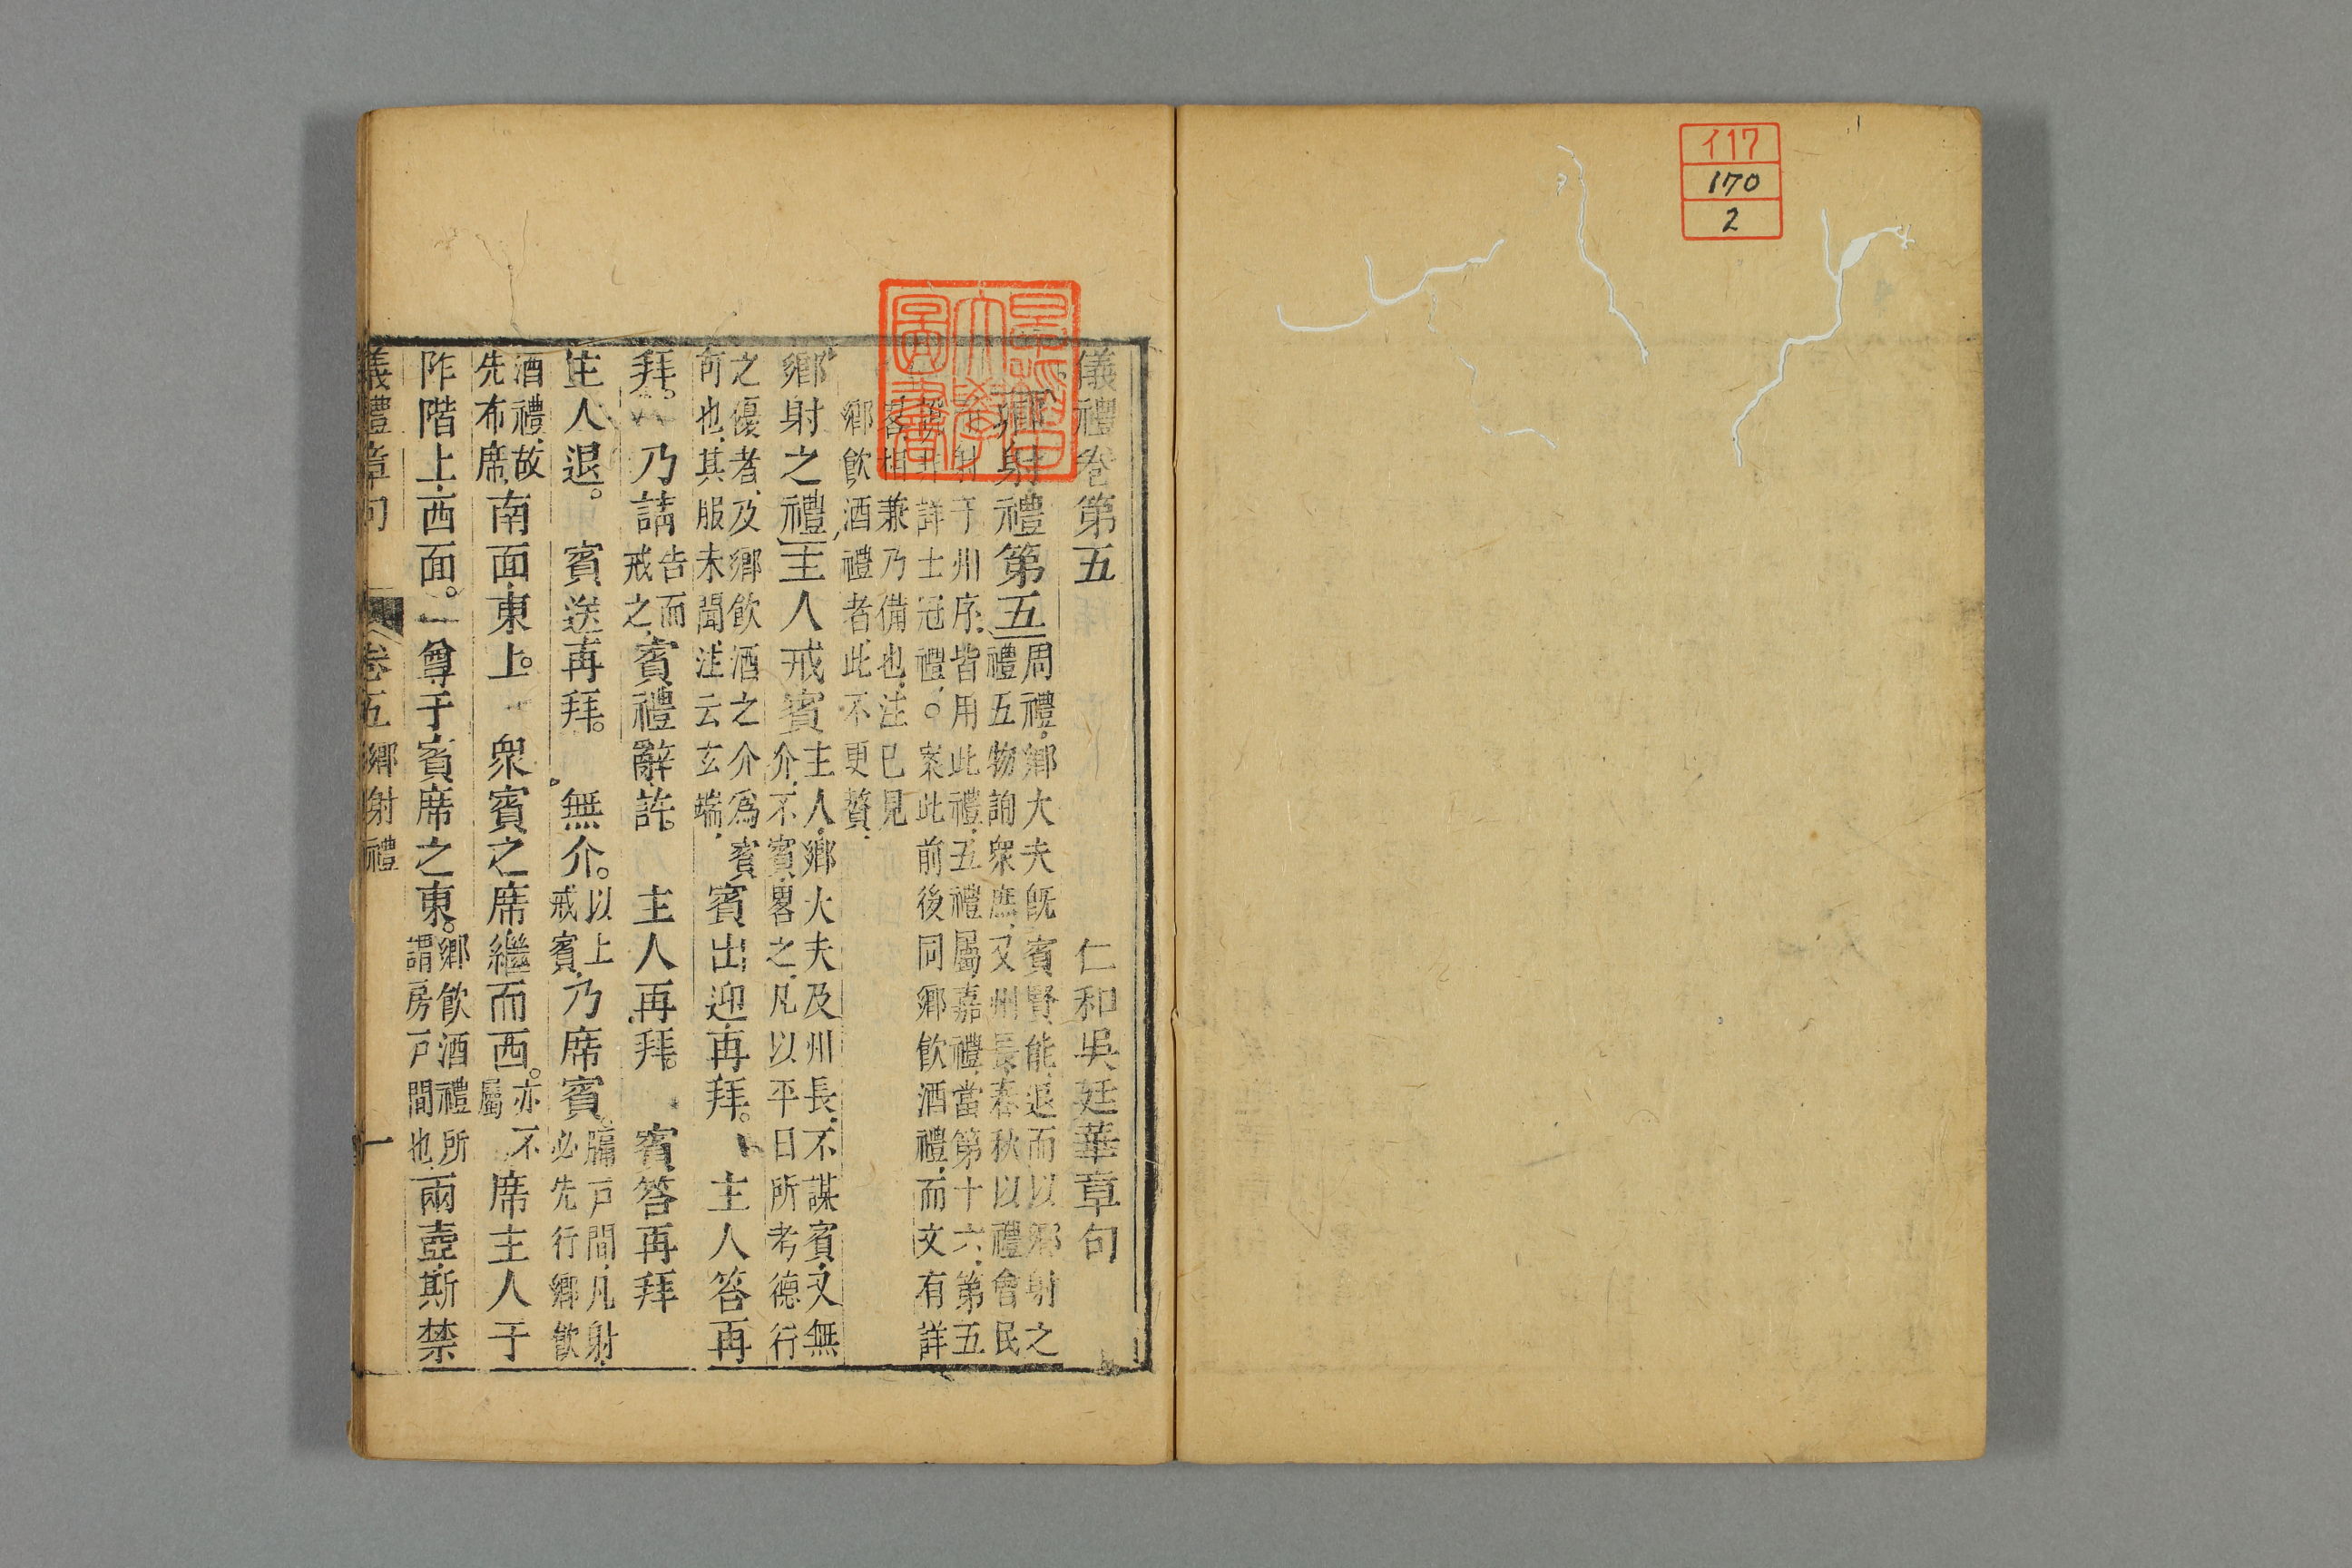 イ17
170
2
早稲田大學圖書
儀禮卷第五　仁和吳廷華章句
鄉射禮第五
周禮鄉大夫既賓賢能退而以鄉射之
禮五物詢衆庶又州長春秋以禮會民
射于州序皆用此禮五禮屬嘉禮當第十六第五
說並詳士冠禮○案此前後同鄉飲酒禮而文有詳
畧相兼乃備也注已見
鄉飲酒禮者此不更贅
鄉射之禮主人戒賓
主人鄉大夫及州長不謀賓又無
介不賓畧之凡以平日所考德行
之優者及鄉飲酒之介爲賓
可也其服未聞注云玄端
賓出迎再拜。主人答再
拜。乃請
告而
戒之
賓禮辭許。主人再拜。賓答再拜
主人退。賓送再拜。無介。
以上
戒賓
乃席賓
牖戶間凡射
必先行鄉飲
酒禮故
先布席
南面東上。衆賓之席繼而西。
亦不
屬
席主人于
阼階上西面。尊于賓席之東。
鄉飲酒禮所
謂房戶間也
兩壺斯禁
儀禮章句　卷五　鄉射禮　一